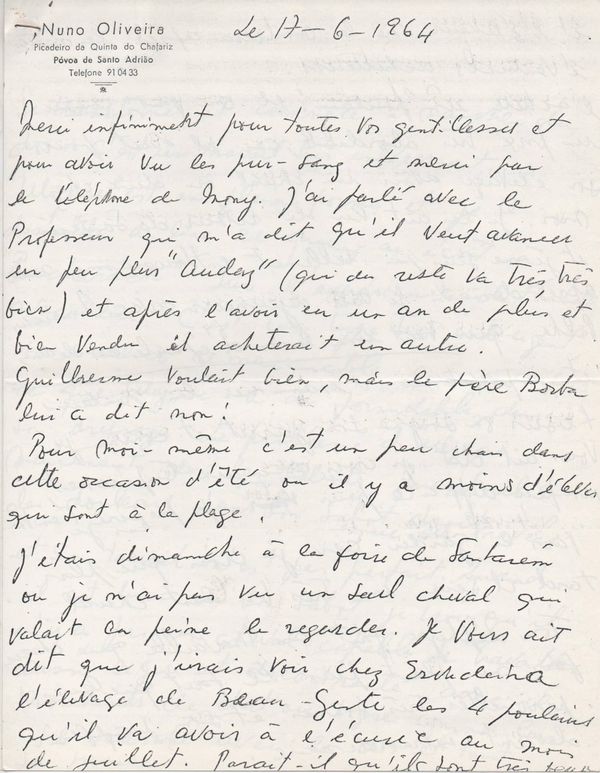 Nuno Oliveira
Picadeiro da Quinta do Chafariz
Póvoa de Santo Adrião
Telefone 91 04 33
Le 17-6-1964
Merci infiniment pour toutes vos gentillesses et
pour avoir vu les pur-sang et merci par
le téléphone de Mony. J'ai parlé avec le
Professeur qui m'a dit qu'il veut avancer
un peu plus "Audaz" (qui du reste va très très
bien) et après l'avoir eu un an de plus et
bien vendu il acheterait un autre.
Guilherme voulait bien, mais le père Borba
lui a dit non!
Pour moi-même c'est un peu chair dans
cette occasion d'été ou il y a moins d'élèves
qui sont à la plage.
J'étais dimanche à la foire de Santarém
ou je n'ai pas vu un seul cheval qui
valait la peine le regarder. Je vous ait
dit que j'irais voir chez
l'élevage de Beau-Geste les 4 poulains
qu'il va avoir à l'écurie au mois
de juillet. Parait-il qu'ils sont très